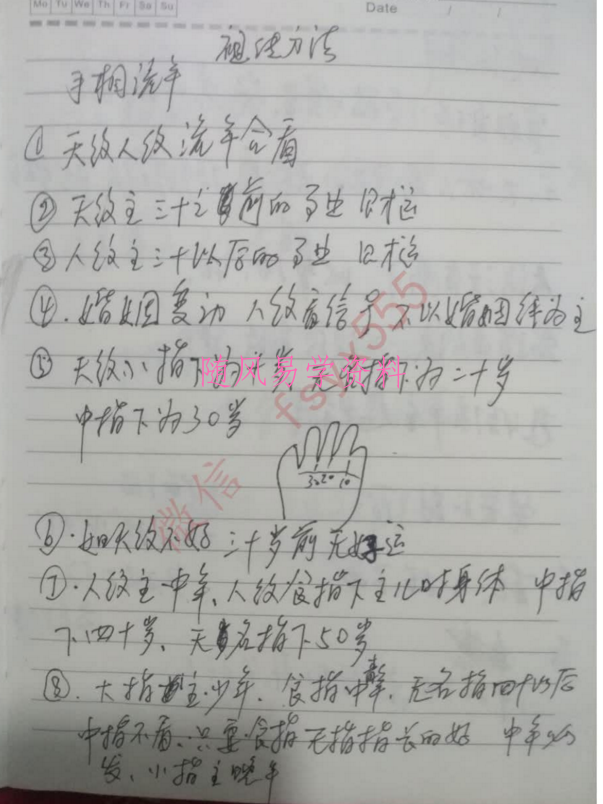 Mo Tu We Th Fr Sa Su
Date / /
方法
手相流年
① 天纹人纹流年合看
② 天纹主三十之前的事业 旦桩
③ 人纹主三十以后的事业 旦桩
④. 婚姻变动 人纹看信号 不以婚姻线为主
⑤ 天纹小指下为十岁, 无名指下为二十岁
随风易学资料
微信 fsyx555
中指下为30岁
30 20 10
⑥. 如天纹不好 三十岁前无好运
⑦. 人纹主中年、人纹食指下主儿时身体 中指
下四十岁、无名指下50岁
⑧. 大指主少年、食指中年、无名指四十以后
中指不看、只要食指无指指长的好 中年必
发、小指主晚年